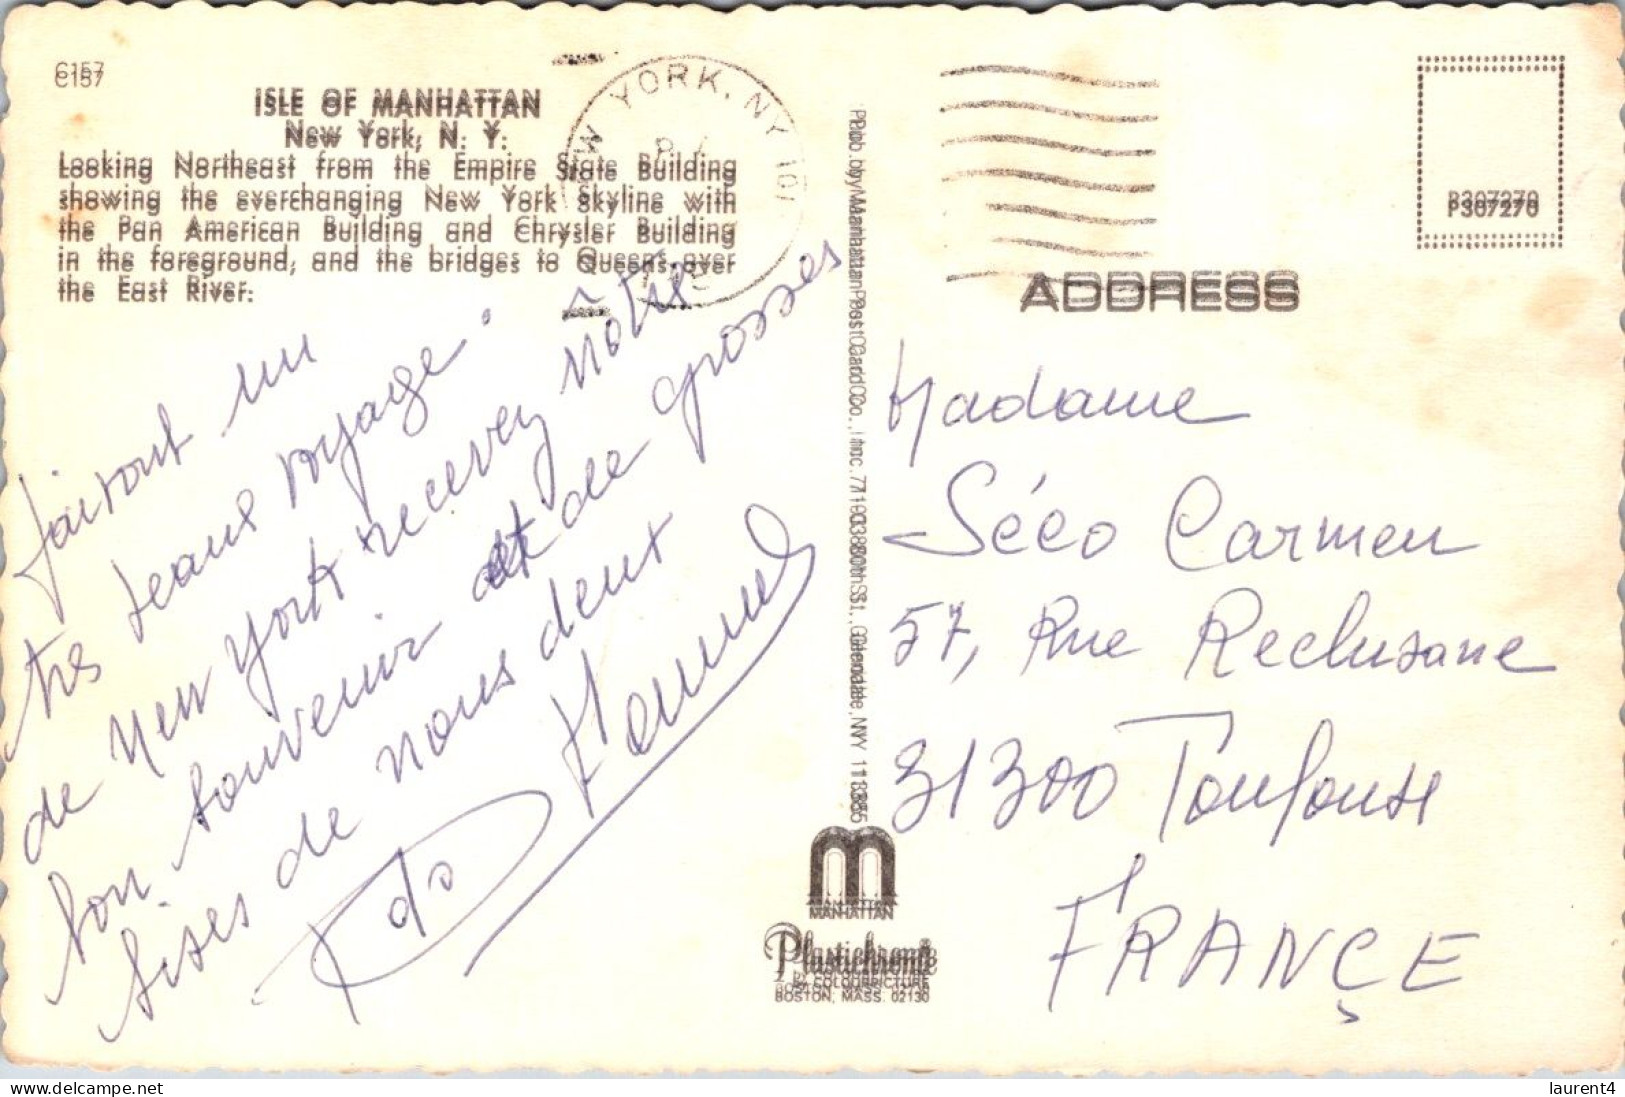 C157
ISLE OF MANHATTAN
New York, N. Y.
Looking Northeast from the Empire State Building
showing the everchanging New York Skyline with
the Pan American Building and Chrysler Building
in the foreground, and the bridges to Queens over
the East River.
YORK, NY 101
faisont un
tres beaux voyage.
de new york recevez nôtre
bon souvenir et de grosses
bises de nous deux
Pub. by Manhattan Post Card Co., Inc. 71-03 80th St., Glendale, NY 11385
MANHATTAN
Plastichrome®
BY COLOURPICTURE
BOSTON, MASS. 02130
P307270
ADDRESS
Madame
Séco Carmen
57, Rue Reclusane
31300 Toulouse
FRANÇE
laurent4